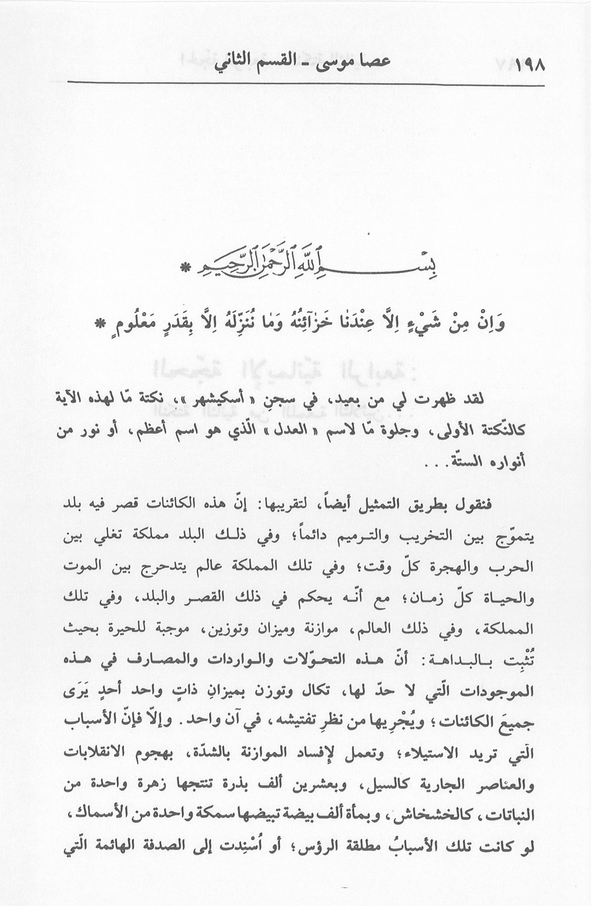 ١٩٨
عصا موسى - القسم الثاني
بِسْمِ اللهِ الرَّحْمٰنِ الرَّحِيمِ *
وَاِنْ مِنْ شَيْءٍ اِلَّا عِنْدَنَا خَزَٓائِنُهُ وَمَا نُنَزِّلُهُ اِلَّا بِقَدَرٍ مَعْلُومٍ *
لقد ظهرت لي من بعيد، في سجنِ «أسكيشهر»، نكتة مّا لهذه الآية
كالنّكتة الأولى، وجلوة مّا لاسم «العدل» الّذي هو اسم أعظم، أو نور من
أنواره الستّة...
فنقول بطريق التمثيل أيضاً، لتقريبها: إنّ هذه الكائنات قصر فيه بلد
يتموّج بين التخريب والترميم دائماً؛ وفي ذلك البلد مملكة تغلي بين
الحرب والهجرة كلّ وقت؛ وفي تلك المملكة عالم يتدحرج بين الموت
والحياة كلّ زمان؛ مع أنّه يحكم في ذلك القصر والبلد، وفي تلك
المملكة، وفي ذلك العالم، موازنة وميزان وتوزين، موجبة للحيرة بحيث
تُثْبِت بالبداهة: أنّ هذه التحوّلات والواردات والمصارف في هذه
الموجودات الّتي لا حدّ لها، تكال وتوزن بميزانِ ذاتٍ واحد أحدٍ يَرَى
جميعَ الكائنات؛ ويُجْرِيها من نظرِ تفتيشه، في آن واحد. وإلّا فإنّ الأسباب
الّتي تريد الاستيلاء؛ وتعمل لإفساد الموازنة بالشدّة، بهجوم الانقلابات
والعناصر الجارية كالسيل، وبعشرين ألف بذرة تنتجها زهرة واحدة من
النباتات، كالخشخاش، وبمأة ألف بيضة تبيضها سمكة واحدة من الأسماك،
لو كانت تلك الأسبابُ مطلقة الرؤس؛ أو اُسْنِدت إلى الصدفة الهائمة الّتي